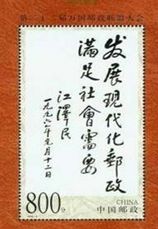 第二十二届万国邮政联盟大会
发展现代化郵政
满足社會需要
江澤民
一九九六年元月十二日
800分
CHINA
中国邮政